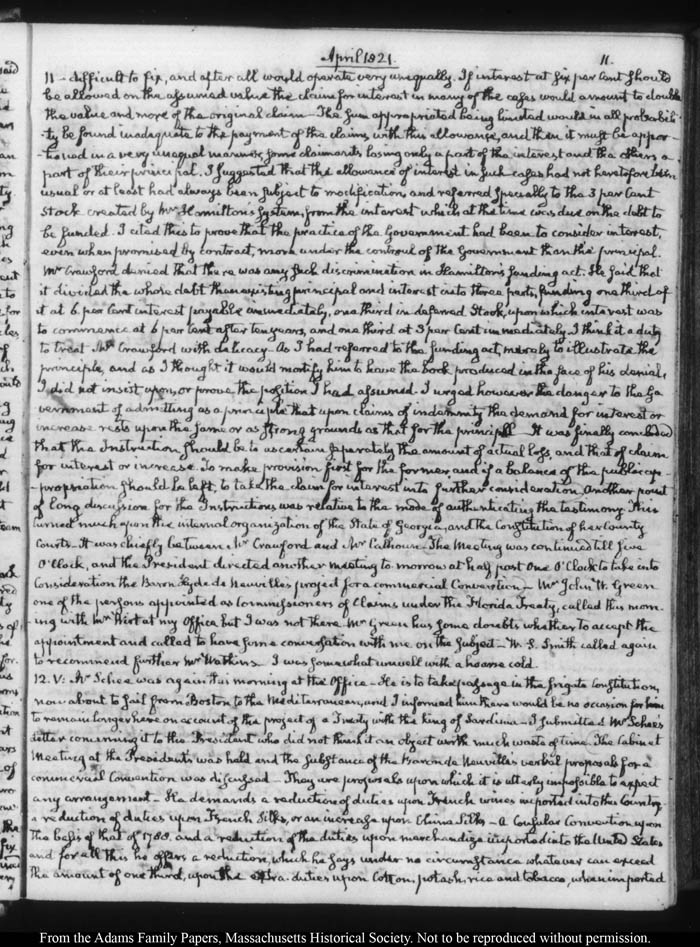 April 1821. 11.
11 – difficult to fix, and after all would operate very unequally. If interest at six per Cent should
be allowed on the assumed value the claim for interest in many of the cases would amount to double
the value and more of the original claim – The sum appropriated being limited would in all probabili-
-ty be found inadequate to the payment of the claims, with this allowance, and then it must be appor-
-tioned in a very unequal manner, some claimants losing only a part of the interest and the others a
part of their principal. I suggested that the allowance of interest in such cases had not heretofore been
usual or at least had always been subject to modification, and referred specially to the 3 per Cent
Stock created by Mr Hamilton's System, from the interest which at the time was due on the debt to
be funded. I cited this to prove that the practice of the Government had been to consider interest,
even when promised by contract, more under the controul of the Government than the principal.
Mr Crawford denied that there was any such discrimination in Hamilton's funding act. He said that
it divided the whole debt then existing principal and interest into three parts, funding one third of
it at 6 per Cent interest payable immediately, one third in deferred Stock, upon which interest was
to commence at 6 per Cent after ten years, and one third at 3 per Cent immediately. I think it a duty
to treat Mr Crawford with delicacy – As I had referred to the funding act, merely to illustrate the
principle, and as I thought it would mortify him to have the book produced in the face of his denial,
I did not insist upon, or prove the position I had assumed. I urged however the danger to the Go
vernment of admitting as a principle that upon claims of indemnity the demand for interest or
increase rests upon the same or as strong grounds as that for the principal – It was finally concluded
that the Instruction should be to ascertain separately the amount of actual loss, and that of claim
for interest or increase. To make provision first for the former and if a balance of the public ap-
-propriation should be left, to take the claim for interest into further consideration. Another point
of long discussion for the Instructions was relative to the mode of authenticating the testimony. This
turned much upon the internal organization of the State of Georgia, and the Constitution of her County
Courts – It was chiefly between Mr Crawford and Mr Calhoun – The Meeting was continued till five
O'Clock, and the President directed another meeting to morrow at half past One O'Clock to take into
Consideration the Baron Hyde de Neuville's project for a commercial Convention – Mr John W. Green
one of the persons appointed as Commissioners of Claims under the Florida Treaty, called this morn-
ing with Mr Wirt at my Office, but I was not there. Mr Green has some doubts whether to accept the
appointment and called to have some conversation with me on the subject – W. S. Smith called again
to recommend further Mr Watkins. I was somewhat unwell with a hoarse cold.
12. V: Mr Schee was again this morning at the Office – He is to take passage in the frigate Constitution,
now about to sail from Boston to the Mediterranean, and I informed him there would be no occasion for him
to remain longer here on account of the project of a Treaty with the King of Sardinia – I submitted Mr Schee's
letter concerning it to the President who did not think it an object worth much waste of time. The Cabinet
Meeting at the President's was held and the substance of the Baron de Neuville's verbal proposals for a
commercial Convention was discussed – They are proposals upon which it is utterly impossible to expect
any arrangement – He demands a reduction of duties upon French wines imported into this Country
a reduction of duties upon French Silks, or an increase upon China Silks – A Consular Convention upon
the basis of that of 1788, and a reduction of the duties upon merchandize imported into the United States
and for all this he offers a reduction, which he says under no circumstance whatever can exceed
the amount of one third, upon the extra duties upon Cotton, potash, rice and tobacco, when imported
From the Adams Family Papers, Massachusetts Historical Society. Not to be reproduced without permission.